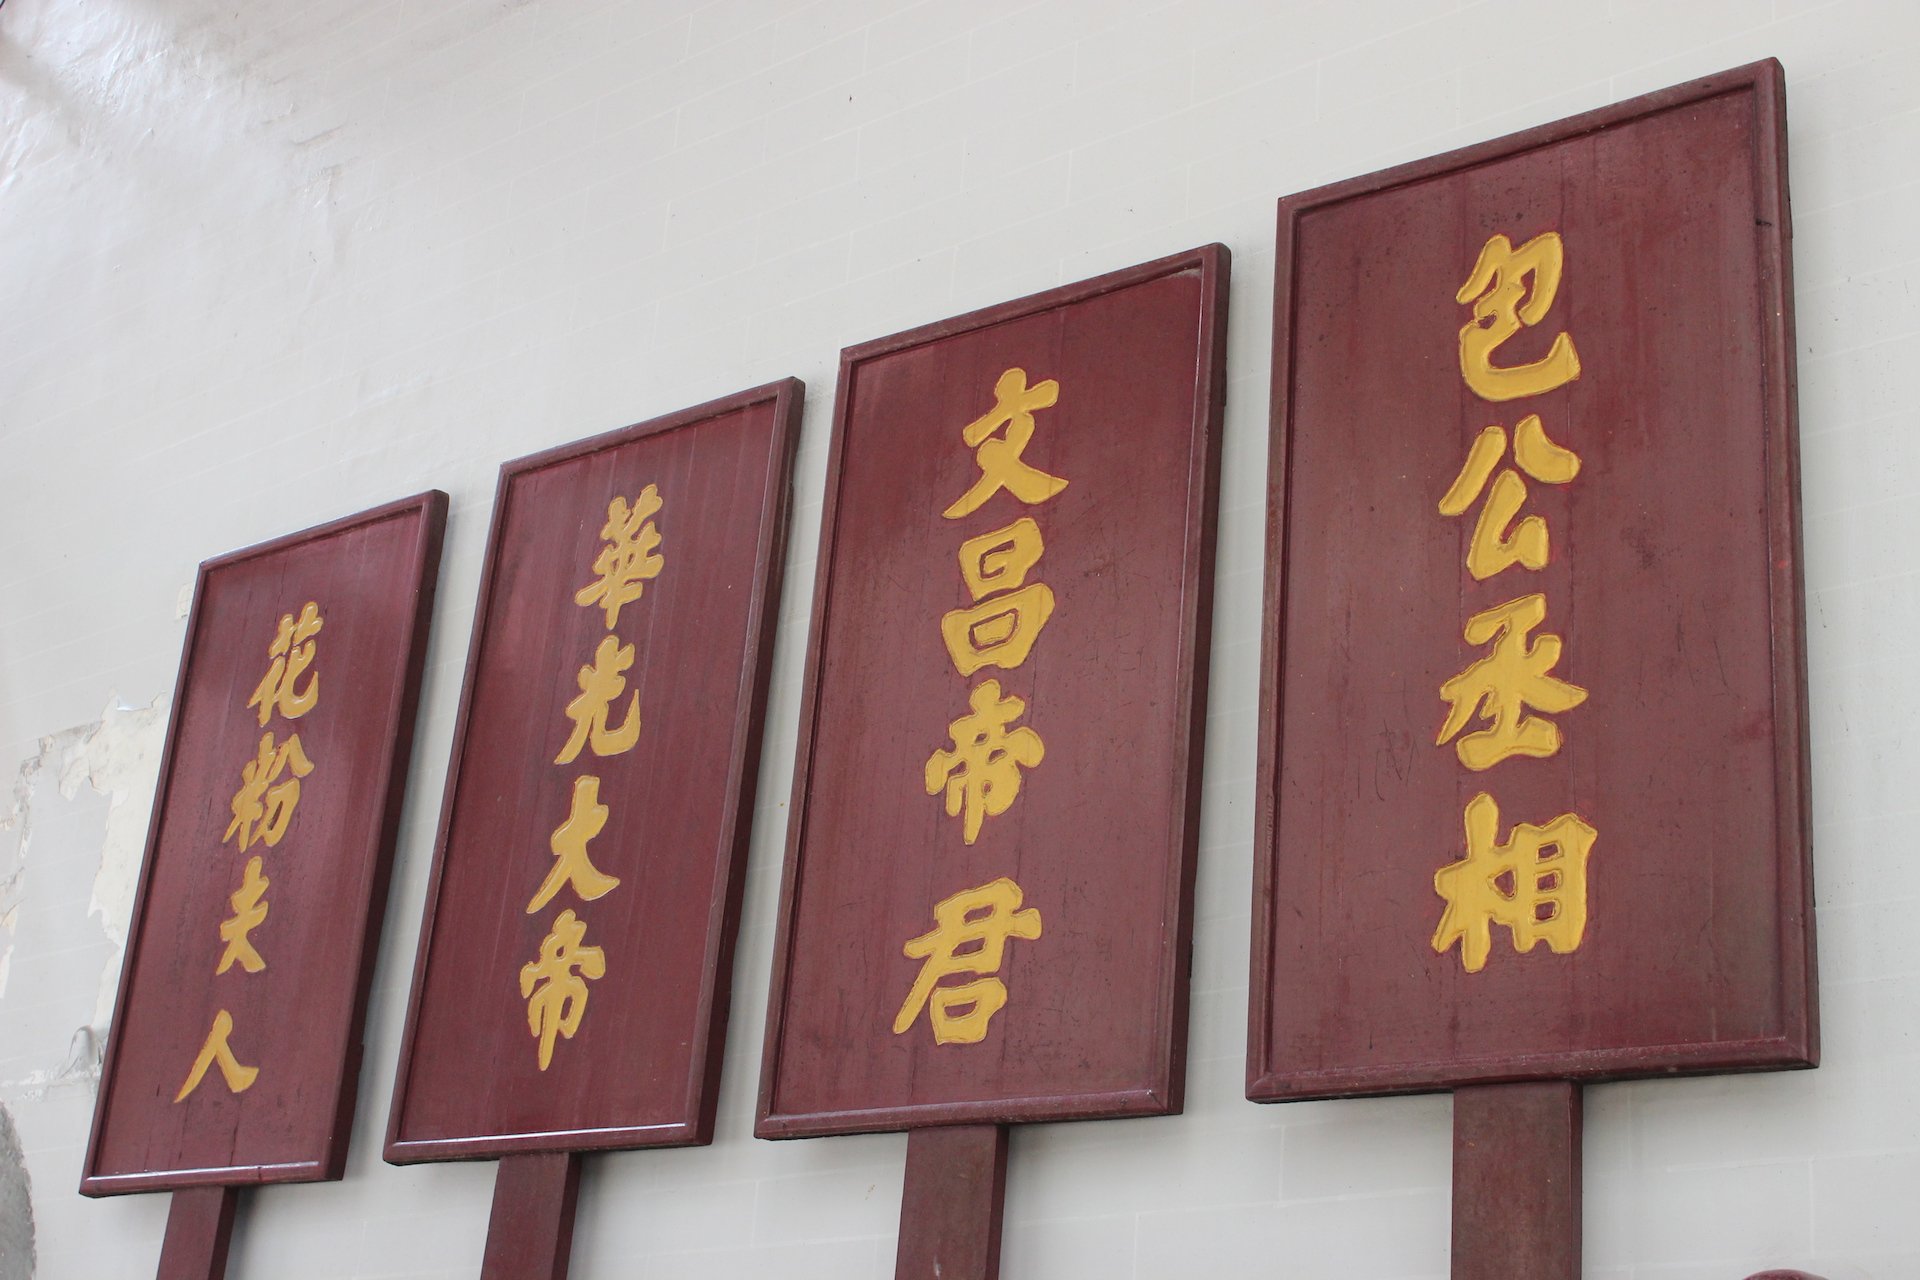 包公丞相
文昌帝君
華光大帝
花粉夫人